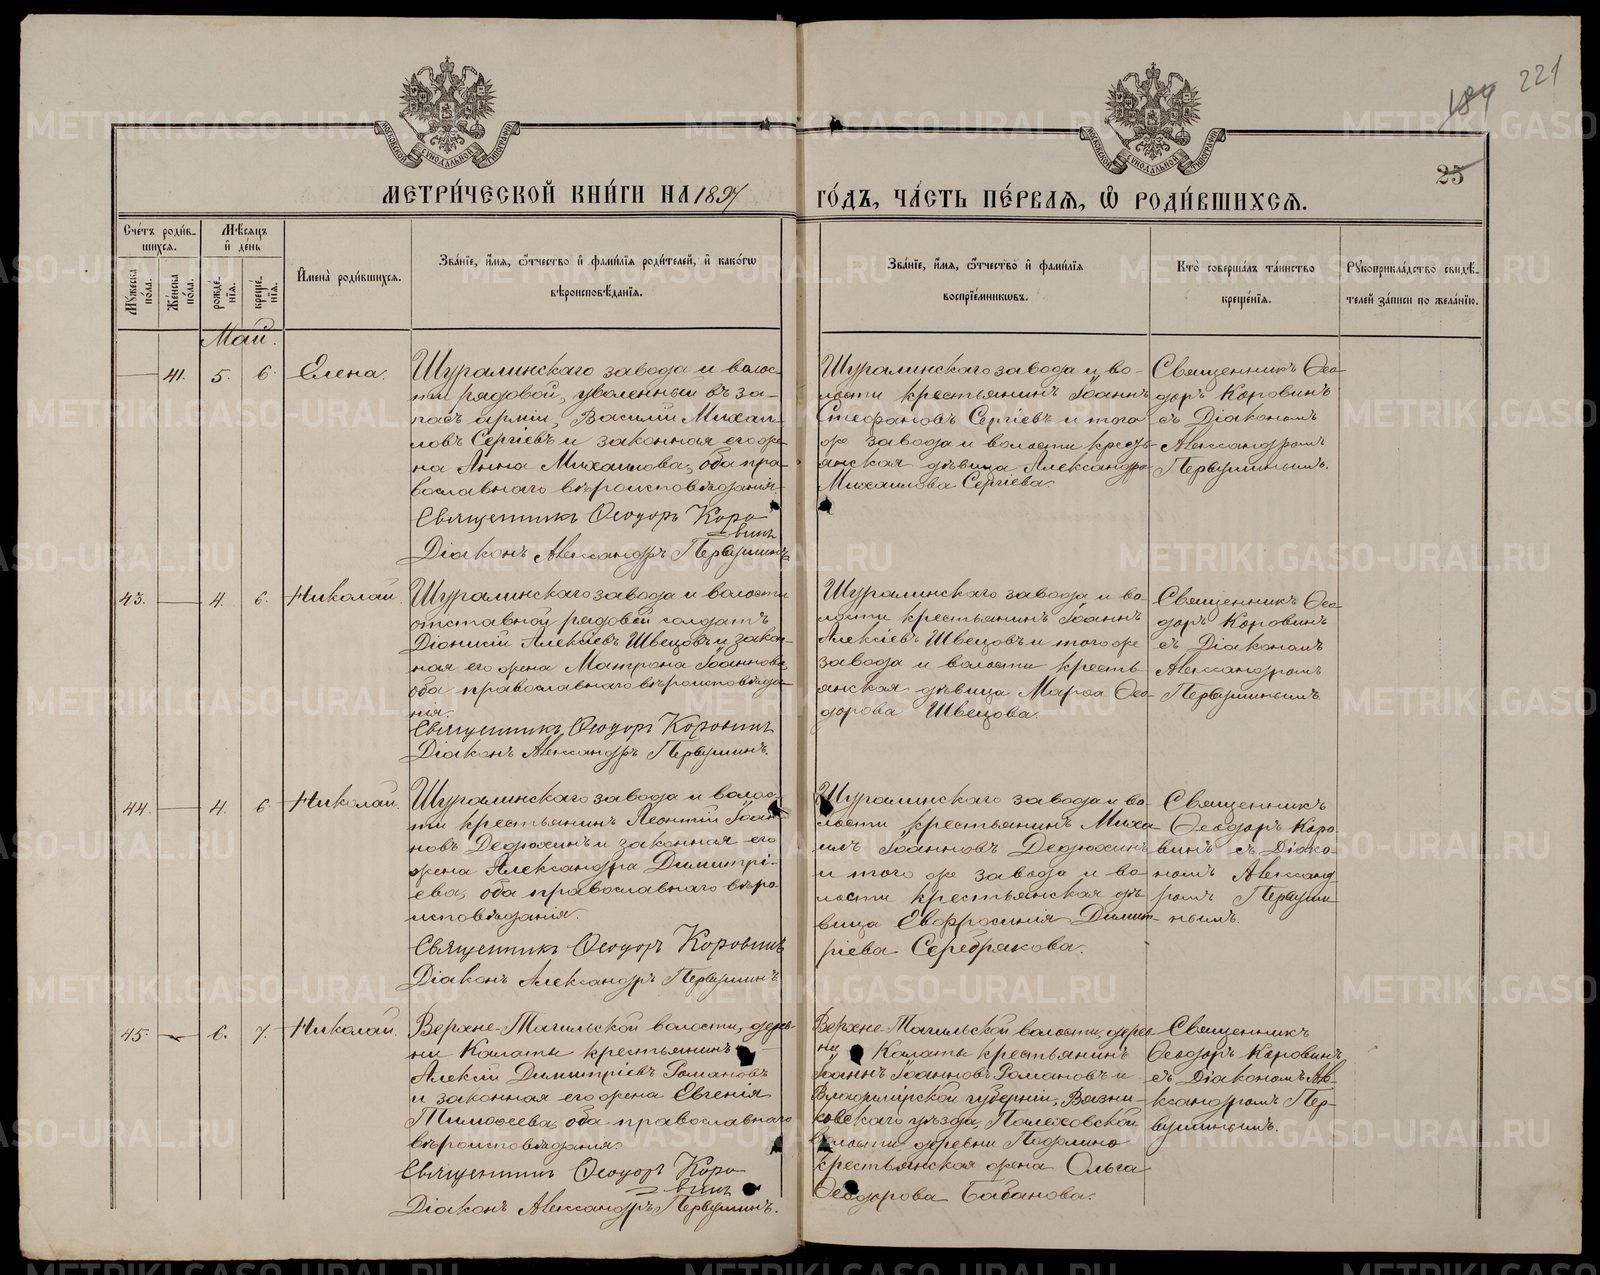 189 221
25
МОСКОВСКОЙ СУНОДАЛЬНОЙ ТИПОГРАФІИ
МОСКОВСКОЙ СУНОДАЛЬНОЙ ТИПОГРАФІИ
МЕТРИ́ЧЕСКОЙ КНИ́ГИ НА 1897 ГО́ДЪ, ЧА́СТЬ ПЕ́РВАѦ, Ѡ҆ РОДИ́ВШИХСѦ.
Сче́тъ роди́в-
шихсѧ.
Мѣ́сѧцъ
и҆ де́нь
Мꙋ́жеска по́ла.
Же́нска по́ла.
рожде́-нїѧ.
креще́-нїѧ.
И҆мена̀ роди́вшихсѧ.
Зва́нїе, и҆́мѧ, ѻ҆́тчество и҆ фами́лїѧ роди́телей, и҆ како́гѡ
вѣроисповѣ́данїѧ.
Зва́нїе, и҆́мѧ, ѻ҆́тчество и҆ фами́лїѧ
воспрїе́мникѡвъ.
Кто̀ соверша́лъ та́инство
креще́нїѧ.
Рꙋкоприкла́дство свидѣ́-
телей за́писи по жела́нїю.
Май.
41. 5. 6. Елена.
Шуралинскаго завода и волос-
ти рядовой, уволенный въ за-
пасъ арміи, Василій Михаи-
ловъ Сергѣевъ и законная его же-
на Анна Михаилова, оба пра-
вославнаго вѣроисповѣданія.
Священникъ Ѳеодоръ Коро
винъ
Діаконъ Александръ Первушинъ
Шуралинскаго завода и во-
лости крестьянинъ Іоаннъ
Стефановъ Сергѣевъ и того
же завода и волости кресть-
янская дѣвица Александра
Михаилова Сергѣева.
Священникъ Ѳео-
доръ Коровинъ
съ Діакономъ
Александромъ
Первушинымъ.
43. 4. 6. Николай.
Шуралинскаго завода и волости
отставной рядовой солдатъ
Діонисій Алексѣевъ Швецовъ и закон-
ная его жена Матрона Іоаннова,
оба православнаго вѣроисповѣда-
нія.
Священникъ Ѳеодоръ Коровинъ
Діаконъ Александръ Первушинъ.
Шуралинскаго завода и во-
лости крестьянинъ Іоаннъ
Алексѣевъ Швецовъ и того же
завода и волости кресть-
янская дѣвица Марѳа Ѳео-
дорова Швецова.
Священникъ Ѳео-
доръ Коровинъ
съ Діакономъ
Александромъ
Первушинымъ.
44. 4. 6. Николай.
Шуралинскаго завода и волос-
ти крестьянинъ Леонтій Іоан-
новъ Дедюхинъ и законная его
жена Александра Димитрі-
ева, оба православнаго вѣро-
исповѣданія.
Священникъ Ѳеодоръ Коровинъ
Діаконъ Александръ Первушинъ
Шуралинскаго завода и во-
лости крестьянинъ Миха-
илъ Іоанновъ Дедюхинъ
и того же завода и во-
лости крестьянская дѣ-
вица Евфросинія Димит-
ріева Серебрякова.
Священникъ
Ѳеодоръ Коро-
винъ съ Діако-
номъ Александ-
ромъ Первуши-
нымъ.
45. 6. 7. Николай.
Верхне-Тагильской волости, дерев-
ни Калаты крестьянинъ
Алексій Димитріевъ Романовъ
и законная его жена Евгенія
Тимоѳеева, оба православнаго
вѣроисповѣданія.
Священникъ Ѳеодоръ Коро
винъ
Діаконъ Александръ Первушинъ.
Верхне-Тагильской волости, дерев-
ни Калаты крестьянинъ
Іоаннъ Іоанновъ Романовъ и
Владимірской губерніи, Вязни-
ковскаго уѣзда, Палеховской
волости деревни Подолино
крестьянская жена Ольга
Ѳеодорова Бабанова.
Священникъ
Ѳеодоръ Коровинъ
съ Діакономъ Але-
ксандромъ Пер-
вушинымъ.
METRIKI.GASO-URAL.RU